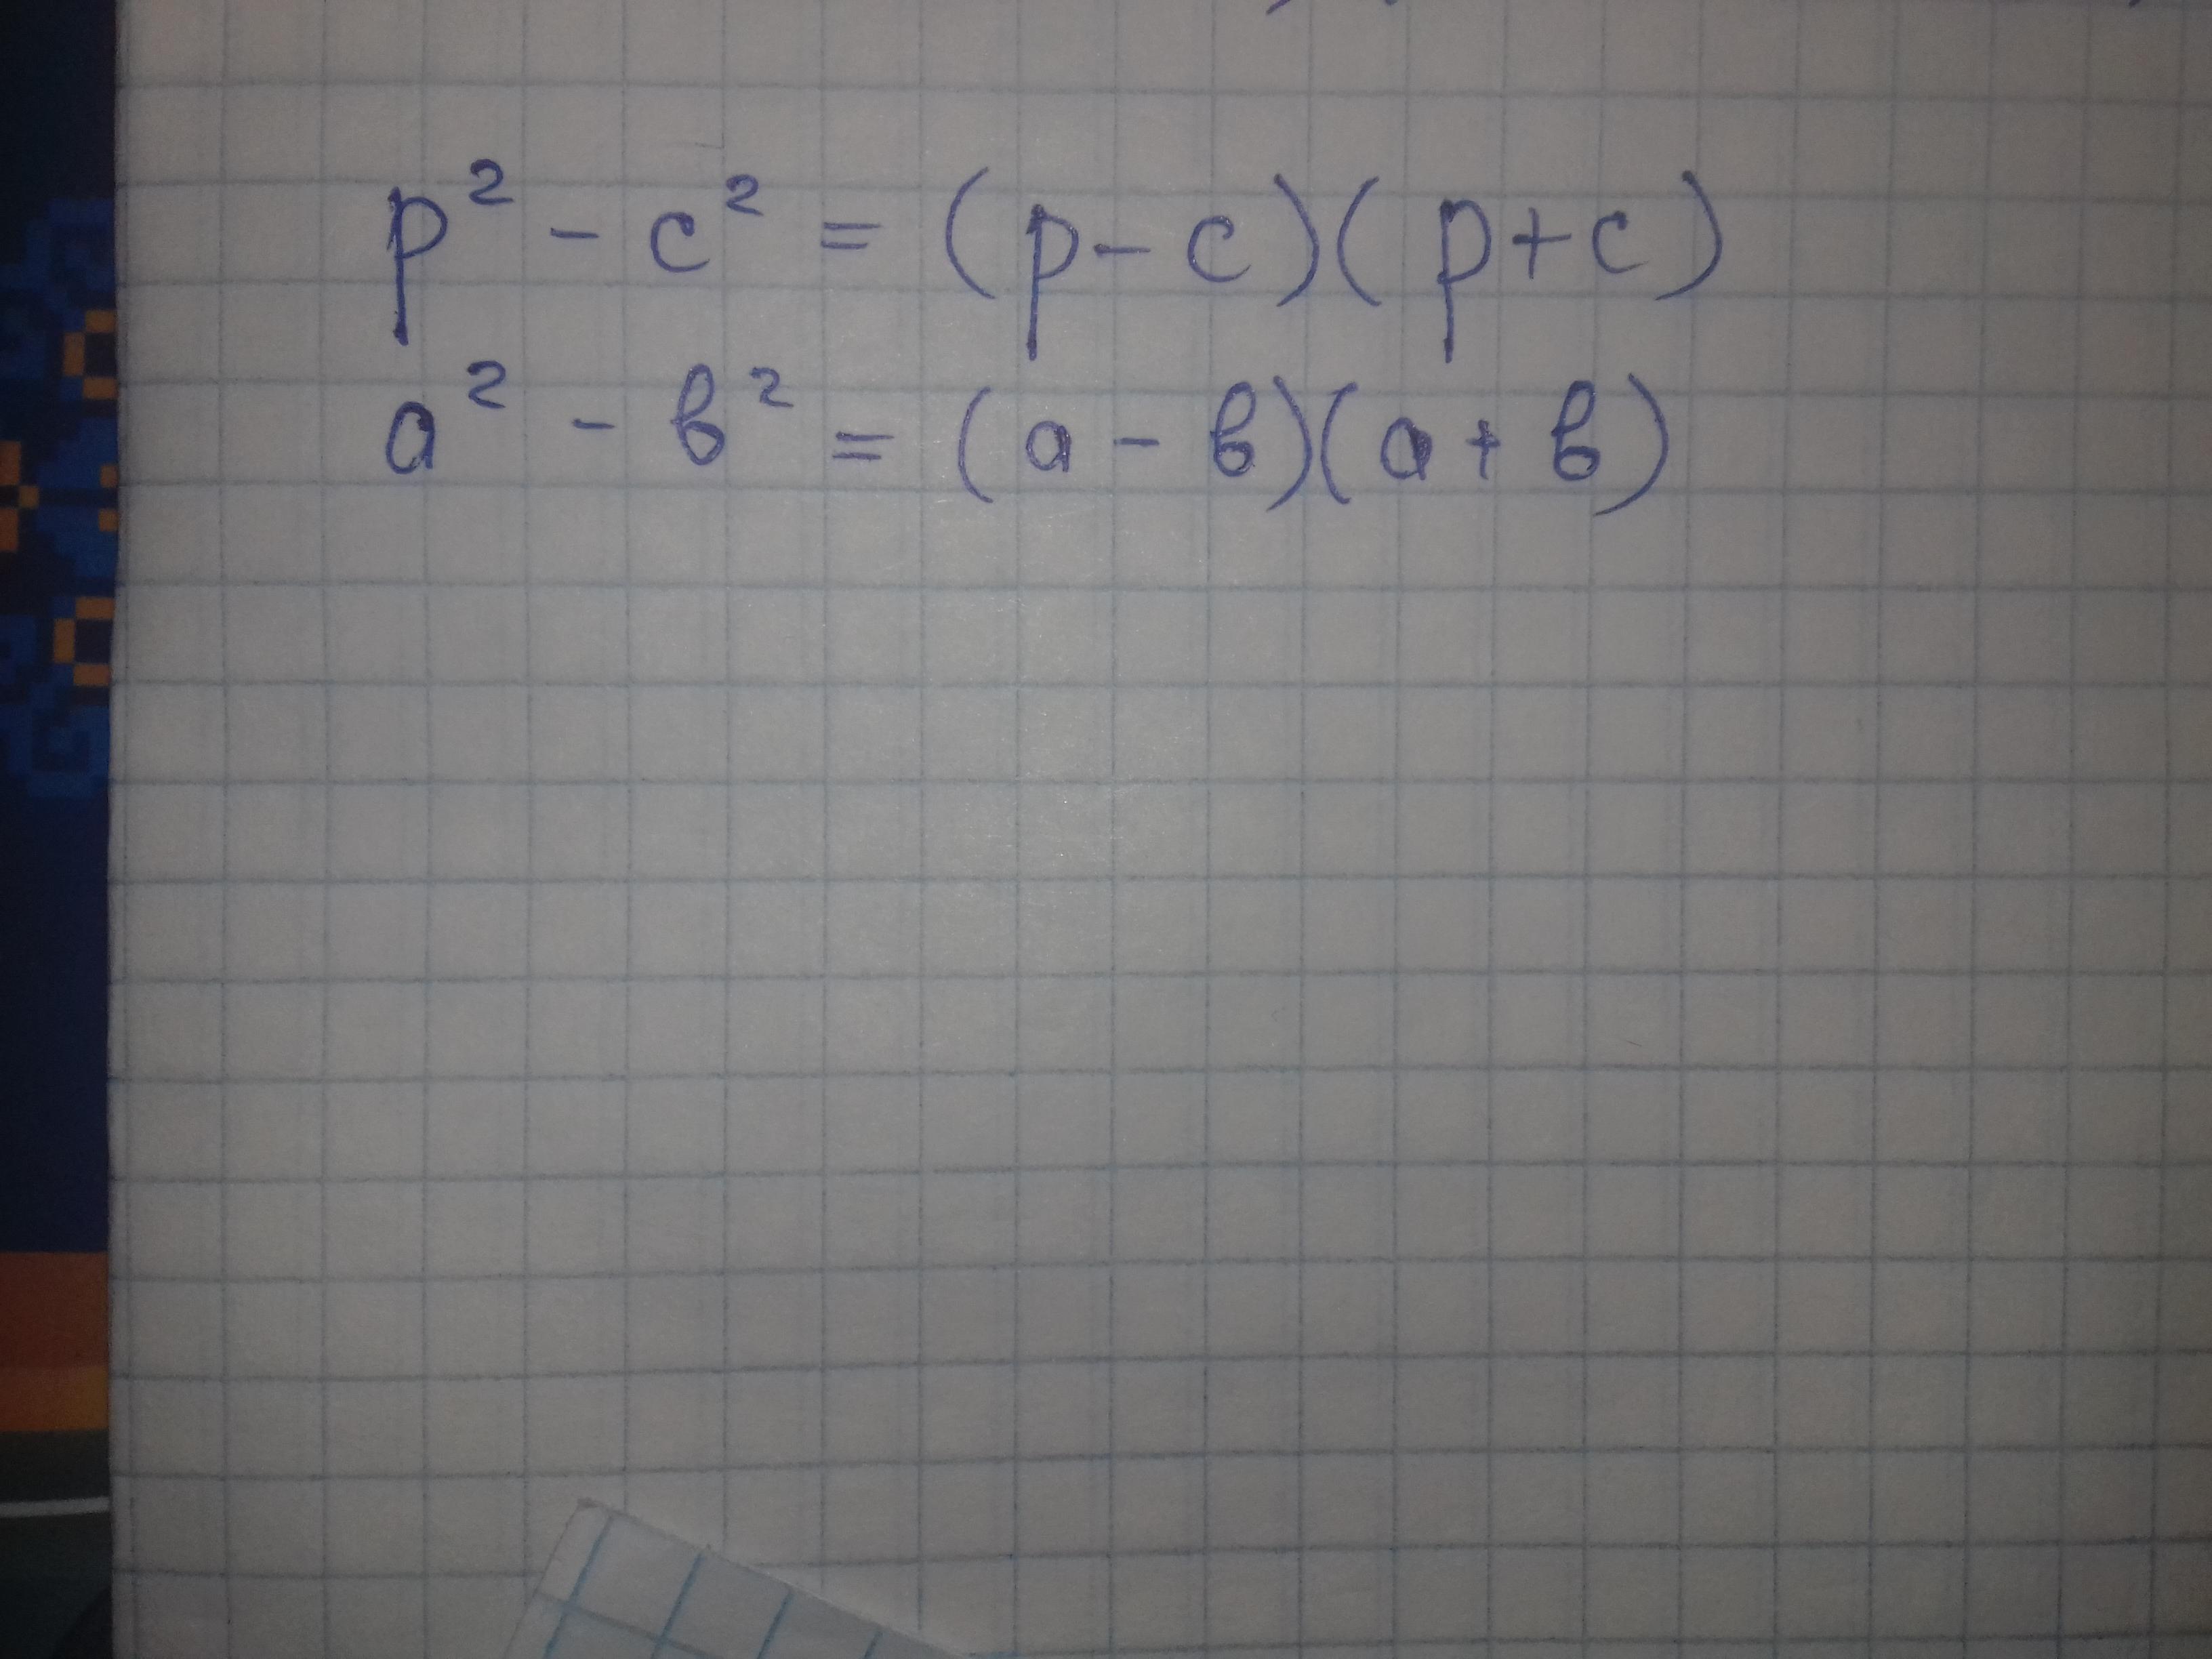 p² - c² = (p - c)(p + c)
a² - в² = (a - в)(a + в)